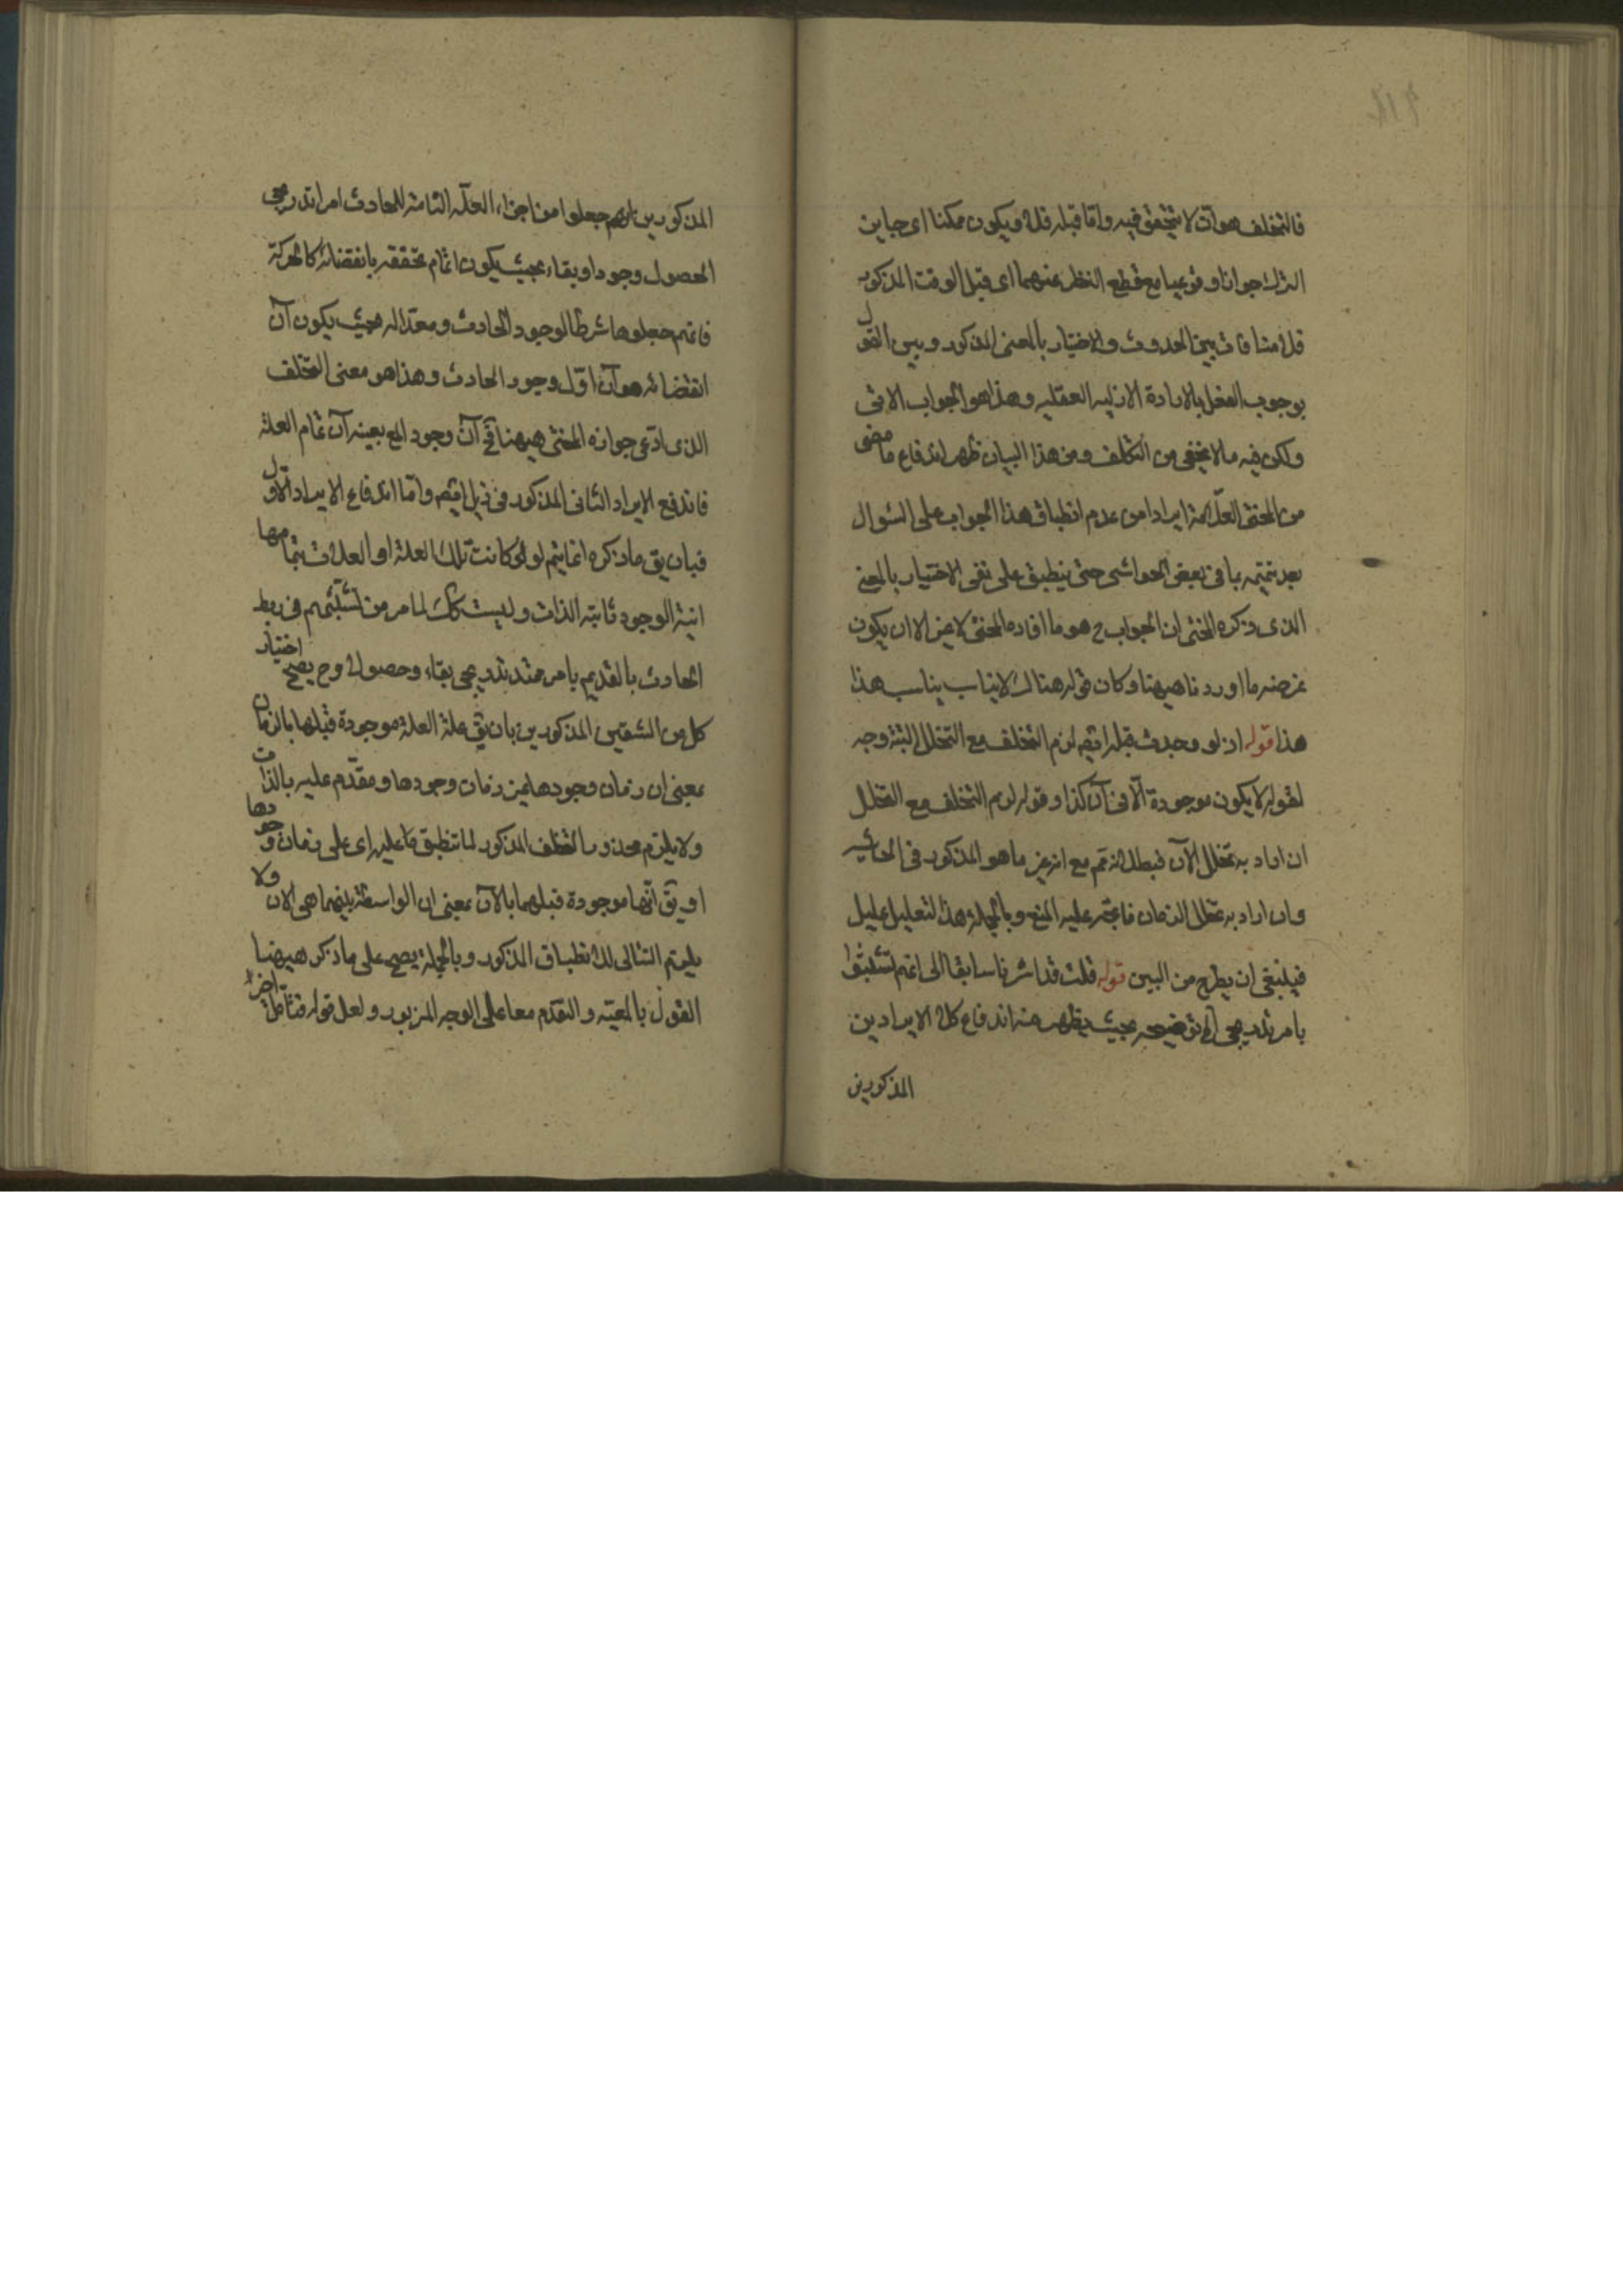 فالتخلف هو آن لا يتحقق فيه وامّا قبله فلا ويكون ممكنا اى جاين
الترك جوازا وقوعيا مع قطع النظر عنهما اى قبل الوقت المذكور
فلا منافات بين الحدوث والاختيار بالمعنى المذكور وبين القول
بوجوب الفعل بالارادة الازليه العقليه وهذا هو الجواب الاتى
ولكن فيه ما لا يخفى من التكلف ومن هذا البيان ظهر اندفاع ما مضى
من المحشى العلّامة ايرادا من عدم انطباق هذا الجواب على السّوال
بعد تتميمه بما فى بعض الحواشى حتى ينطبق على نفى الاختيار بالمعنى
الذى ذكره المحشى ان الجواب ح هو ما افاده المحشى لا غير الا ان يكون
غرضه ما اوردنا هيهنا وكان قوله هناك لا يناسب يناسب هذا
هذا قوله اذ لو حدث قبله ايضم لزم التخلف مع التخلل البتة وجه
لقوله لا يكون موجودة الّا فى آن كذا وقوله لزم التخلف مع التخلل
ان اراد به تخلل الآن فبطلانه تم مع انه غير ما هو المذكور فى الحاشيه
وان اراد به تخلل الزمان فاتجه عليه المنع وبالجملة هذا التعليل عليل
فينبغى ان يطرح من البين قوله قلت قد اشرنا سابقا الى انهم تشبثوا
بامر تدريجى آه توضيحه بحيث يظهر منه اندفاع كلا الايرادين
المذكورين
المذكورين انهم جعلوا من اجزاء العلّه التامة للحادث امرا تدريجى
الحصول وجودا وبقاء بحيث يكون اتمام تحققه بانقضائه كالحركة
فانهم جعلوها شرطا لوجود الحادث ومعدّا له بحيث يكون آن
انقضائه هو آن اوّل وجود الحادث وهذا هو معنى التخلف
الذى ادّعى جوازه المحشى هيهنا فى آن وجود المع بعينه آن تمام العلة
فاندفع الايراد الثانى المذكور فى ذيل ايضم وامّا اندفاع الايراد الاول
فبان يق ما ذكره انما يتم لو كانت تلك العلة او العلات بتمامها
انية الوجود ثابته الذات وليست كك لما مر من تشبثهم فى ربط
الحادث بالقديم بامر ممتد تدريجى بقاء وحصولا وح يصح اختيار
كل من الشقين المذكورين بان يق علة العلة موجودة قبلها بالزمان
بمعنى ان زمان وجودها غير زمان وجودها ومقدّم عليه بالذات
ولا يلزم محذور التخلف المذكور لما تنطبق ما عليه اى على زمان وجودها
او يق انّها موجودة قبلهما بالآن بمعنى ان الواسطة بينهما هى الان ولا
يلزم التتالى للانطباق المذكور وبالجملة يصح على ما ذكر هيهنا
القول بالمعيّة والتقدّم معا على الوجه المزبور ولعل قوله فتأمّل اخرا